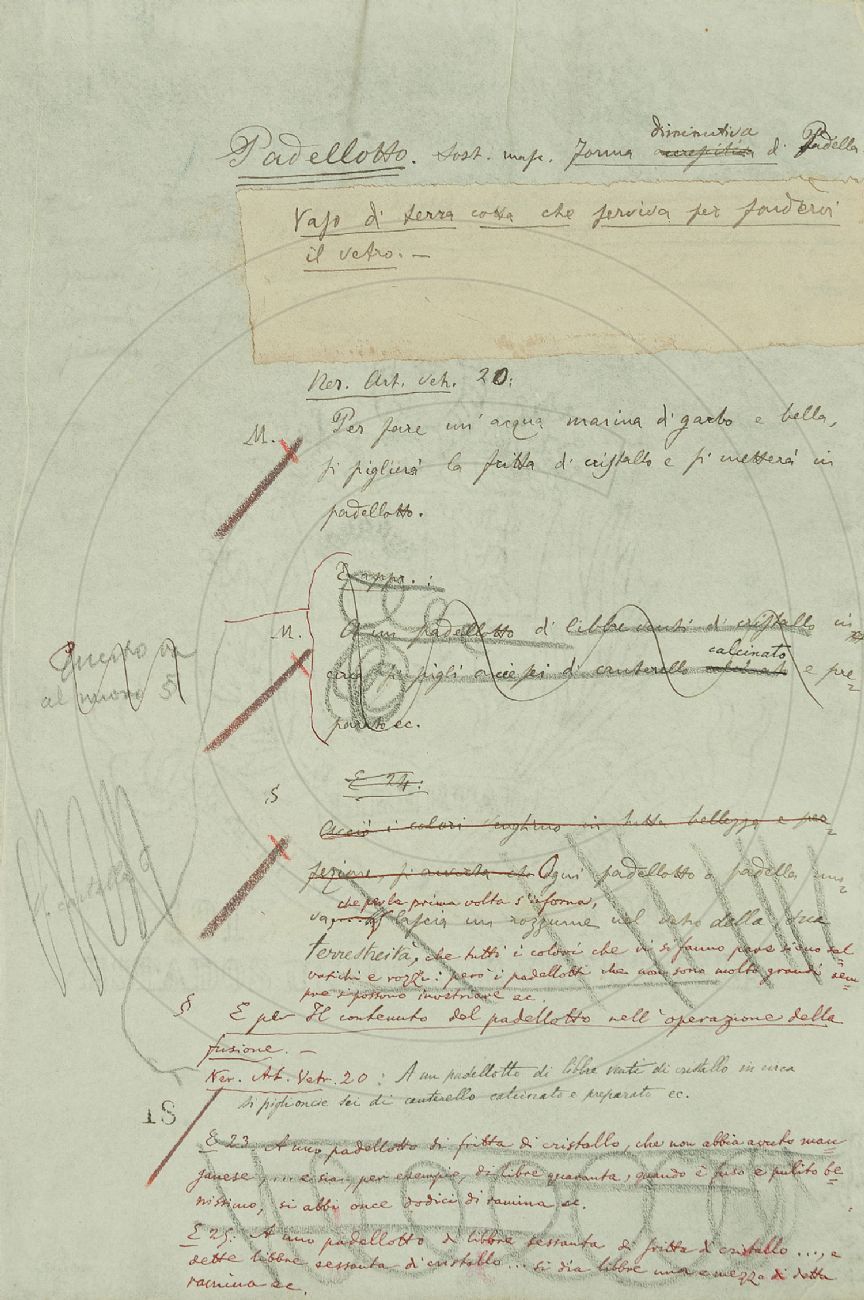 diminutiva
Padellotto. Sost. masc. Forma accrescitiva di Padella
Vaso di terra cotta che serviva per fondervi
il vetro. —
Ner. Art. vetr. 20:
M. Per fare un' acqua marina di garbo e bella,
si piglierà la fritta di cristallo e si metterà in
padellotto.
E appr. :
M. A un padellotto di libbre venti di cristallo in
calcinato
circa si pigli oncie sei di canterello e pre=
parato ec.
Questo va
al nuovo §
§ E 24.:
Acciò i colori venghino in tutta bellezza e per=
fezione, si avverta che Ogni padellotto o padella nuo=
che per la prima volta s'inforna,
va, lascia un rozzume nel vetro dalla sua
terrestreità, che tutti i colori che vi si fanno pare sieno sel
vatichi e rozzi: però i padellotti che non sono molto grandi sem=
pre si possono invetriare ec.
§ E per Il contenuto del padellotto nell' operazione della
fusione. —
Ner. Art. Vetr. 20: A un padellotto di libbre vente di cristallo in circa
si pigli oncie sei di canterello calcinato e preparato ec.
18
E 23. A uno padellotto di fritta di cristallo, che non abbia avuto man=
ganese, ... e sia, per esempio, di libbre quaranta, quando è fuso e pulito be=
nissimo, si abbi once dodici di ramina ec.
E 25. A uno padellotto di libbre sessanta di fritta di cristallo ..., a
dette libbre sessanta di cristallo ... si dia libbre una e mezza di detta
ramina ec.